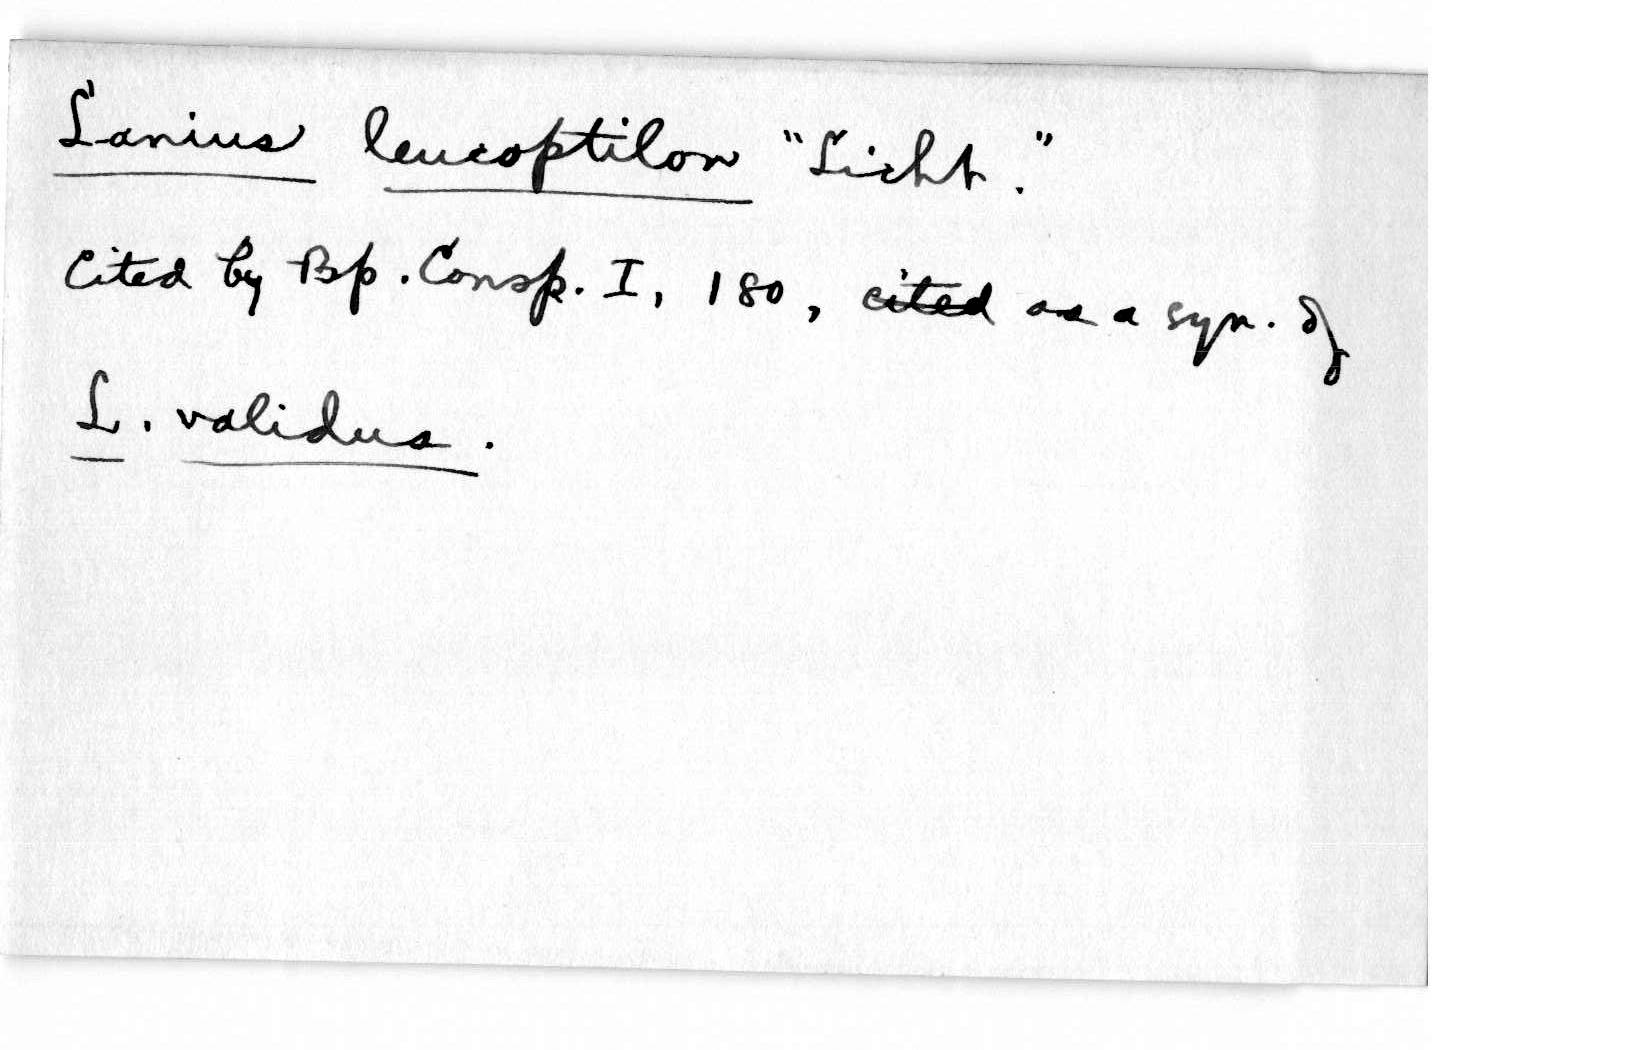 Lanius leucoptilon "Licht."
Cited by Bp. Consp. I, 180, cited as a syn. of
L. validus.